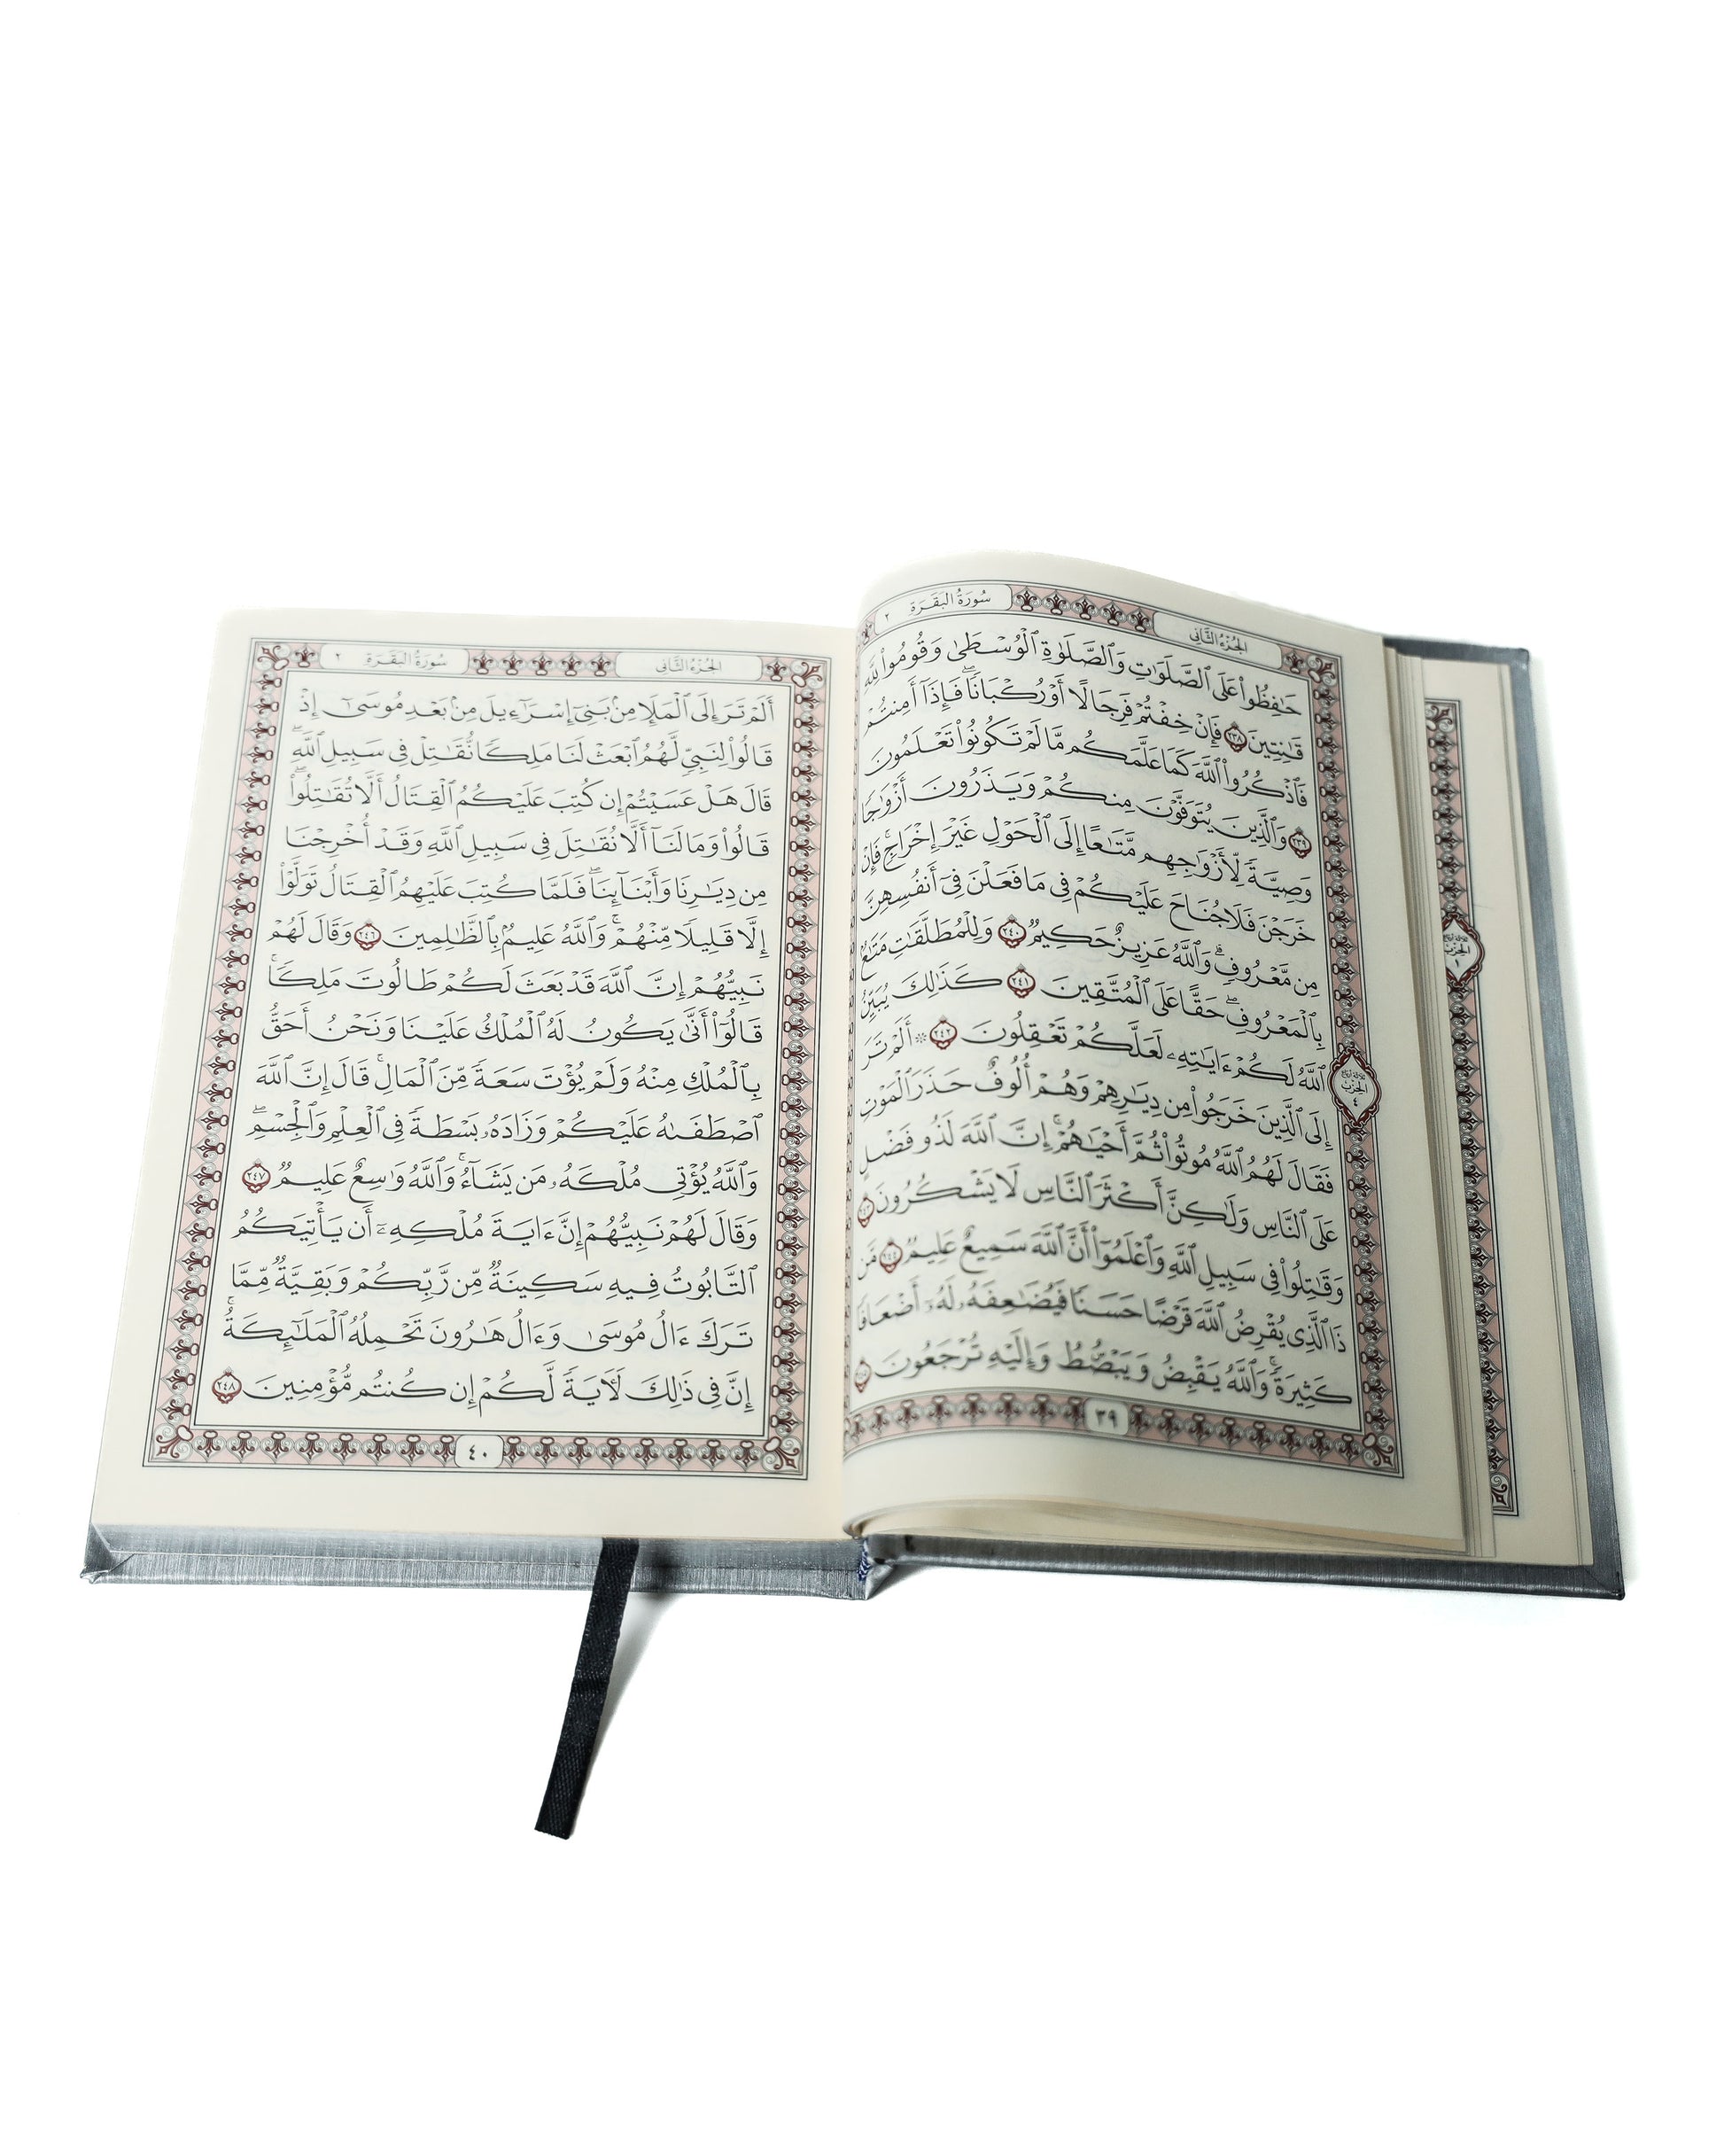 الجزء الثاني
سورة البقرة ٢
حَٰفِظُوا۟ عَلَى ٱلصَّلَوَٰتِ وَٱلصَّلَوٰةِ ٱلْوُسْطَىٰ وَقُومُوا۟ لِلَّهِ
قَٰنِتِينَ ٢٣٨ فَإِنْ خِفْتُمْ فَرِجَالًا أَوْ رُكْبَانًا ۖ فَإِذَآ أَمِنتُمْ
فَٱذْكُرُوا۟ ٱللَّهَ كَمَا عَلَّمَكُم مَّا لَمْ تَكُونُوا۟ تَعْلَمُونَ
٢٣٩ وَٱلَّذِينَ يُتَوَفَّوْنَ مِنكُمْ وَيَذَرُونَ أَزْوَٰجًا
وَصِيَّةً لِّأَزْوَٰجِهِم مَّتَٰعًا إِلَى ٱلْحَوْلِ غَيْرَ إِخْرَاجٍ ۚ فَإِنْ
خَرَجْنَ فَلَا جُنَاحَ عَلَيْكُمْ فِى مَا فَعَلْنَ فِىٓ أَنفُسِهِنَّ
مِن مَّعْرُوفٍ ۗ وَٱللَّهُ عَزِيزٌ حَكِيمٌ ٢٤٠ وَلِلْمُطَلَّقَٰتِ مَتَٰعٌۢ
بِٱلْمَعْرُوفِ ۖ حَقًّا عَلَى ٱلْمُتَّقِينَ ٢٤١ كَذَٰلِكَ يُبَيِّنُ
ٱللَّهُ لَكُمْ ءَايَٰتِهِۦ لَعَلَّكُمْ تَعْقِلُونَ ٢٤٢ ۞ أَلَمْ تَرَ
إِلَى ٱلَّذِينَ خَرَجُوا۟ مِن دِيَٰرِهِمْ وَهُمْ أُلُوفٌ حَذَرَ ٱلْمَوْتِ
فَقَالَ لَهُمُ ٱللَّهُ مُوتُوا۟ ثُمَّ أَحْيَٰهُمْ ۚ إِنَّ ٱللَّهَ لَذُو فَضْلٍ
عَلَى ٱلنَّاسِ وَلَٰكِنَّ أَكْثَرَ ٱلنَّاسِ لَا يَشْكُرُونَ ٢٤٣
وَقَٰتِلُوا۟ فِى سَبِيلِ ٱللَّهِ وَٱعْلَمُوٓا۟ أَنَّ ٱللَّهَ سَمِيعٌ عَلِيمٌ ٢٤٤ مَّن
ذَا ٱلَّذِى يُقْرِضُ ٱللَّهَ قَرْضًا حَسَنًا فَيُضَٰعِفَهُۥ لَهُۥٓ أَضْعَافًا
كَثِيرَةً ۚ وَٱللَّهُ يَقْبِضُ وَيَبْصُۜطُ وَإِلَيْهِ تُرْجَعُونَ ٢٤٥
٣٩
ثلاثة أرباع
الحزب
٤
ثلاثة أرباع
الحزب
١
الجزء الثاني
سورة البقرة ٢
أَلَمْ تَرَ إِلَى ٱلْمَلَإِ مِنۢ بَنِىٓ إِسْرَٰٓءِيلَ مِنۢ بَعْدِ مُوسَىٰٓ إِذْ
قَالُوا۟ لِنَبِىٍّ لَّهُمُ ٱبْعَثْ لَنَا مَلِكًا نُّقَٰتِلْ فِى سَبِيلِ ٱللَّهِ ۖ
قَالَ هَلْ عَسَيْتُمْ إِن كُتِبَ عَلَيْكُمُ ٱلْقِتَالُ أَلَّا تُقَٰتِلُوا۟ ۖ
قَالُوا۟ وَمَا لَنَآ أَلَّا نُقَٰتِلَ فِى سَبِيلِ ٱللَّهِ وَقَدْ أُخْرِجْنَا
مِن دِيَٰرِنَا وَأَبْنَآئِنَا ۖ فَلَمَّا كُتِبَ عَلَيْهِمُ ٱلْقِتَالُ تَوَلَّوْا۟
إِلَّا قَلِيلًا مِّنْهُمْ ۗ وَٱللَّهُ عَلِيمٌۢ بِٱلظَّٰلِمِينَ ٢٤٦ وَقَالَ لَهُمْ
نَبِيُّهُمْ إِنَّ ٱللَّهَ قَدْ بَعَثَ لَكُمْ طَالُوتَ مَلِكًا ۚ
قَالُوٓا۟ أَنَّىٰ يَكُونُ لَهُ ٱلْمُلْكُ عَلَيْنَا وَنَحْنُ أَحَقُّ
بِٱلْمُلْكِ مِنْهُ وَلَمْ يُؤْتَ سَعَةً مِّنَ ٱلْمَالِ ۚ قَالَ إِنَّ ٱللَّهَ
ٱصْطَفَىٰهُ عَلَيْكُمْ وَزَادَهُۥ بَسْطَةً فِى ٱلْعِلْمِ وَٱلْجِسْمِ ۖ
وَٱللَّهُ يُؤْتِى مُلْكَهُۥ مَن يَشَآءُ ۚ وَٱللَّهُ وَٰسِعٌ عَلِيمٌ ٢٤٧
وَقَالَ لَهُمْ نَبِيُّهُمْ إِنَّ ءَايَةَ مُلْكِهِۦٓ أَن يَأْتِيَكُمُ
ٱلتَّابُوتُ فِيهِ سَكِينَةٌ مِّن رَّبِّكُمْ وَبَقِيَّةٌ مِّمَّا
تَرَكَ ءَالُ مُوسَىٰ وَءَالُ هَٰرُونَ تَحْمِلُهُ ٱلْمَلَٰٓئِكَةُ ۚ
إِنَّ فِى ذَٰلِكَ لَءَايَةً لَّكُمْ إِن كُنتُم مُّؤْمِنِينَ ٢٤٨
٤٠